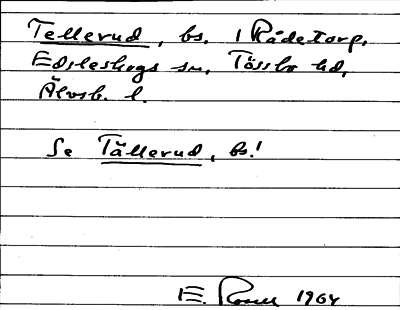 Tellerud, bs. i Rådetorp,
Edsleskogs sn, Tössbo hd,
Älvsb. l.
Se Tållerud, bs!
E. 1964